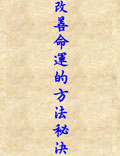 改善命運的方法秘決